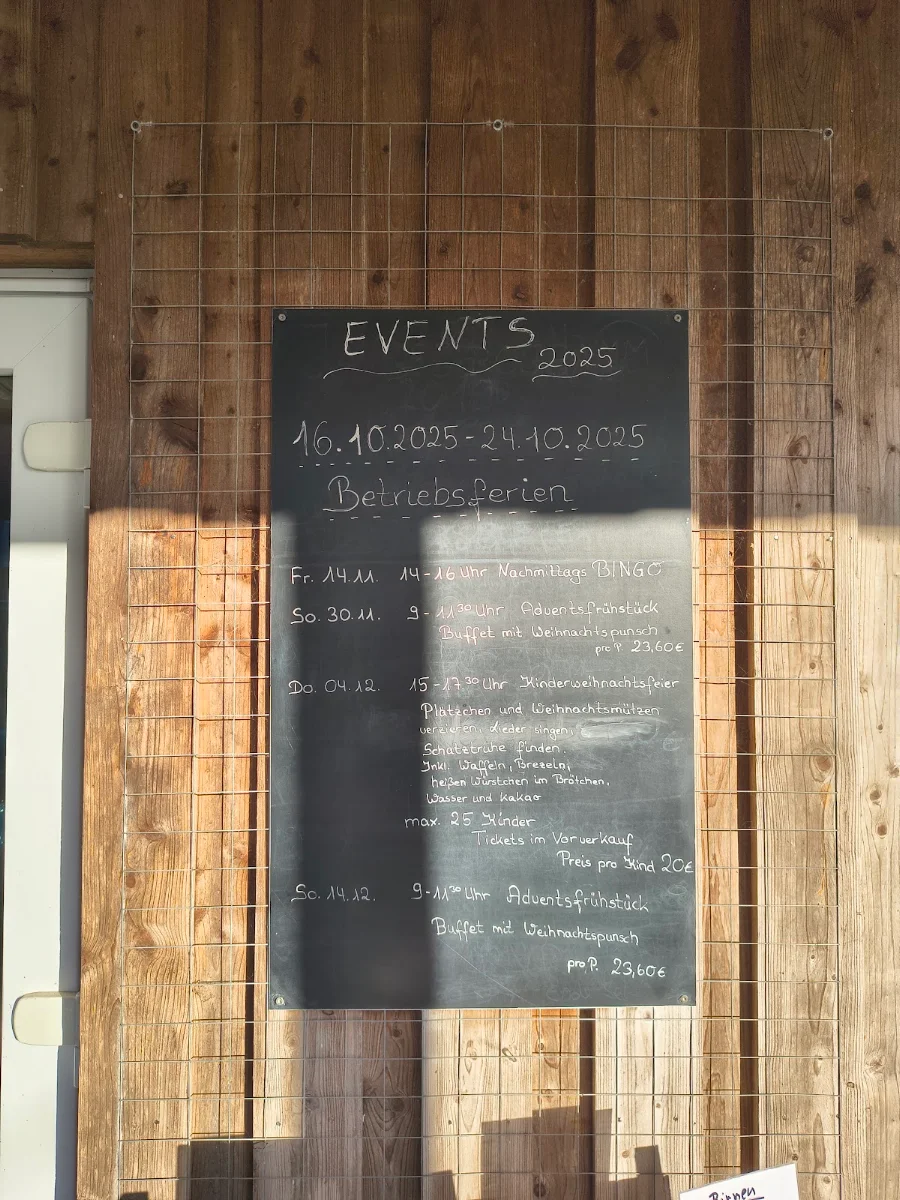 EVENTS
2025
16.10.2025-24.10.2025
Betriebsferien
Fr. 14.11. 14-16 Uhr Nachmittags BINGO
So. 30.11. 9-11³⁰ Uhr Adventsfrühstück
Buffet mit Weihnachtspunsch
pro P. 23,60€
Do. 04.12. 15-17³⁰ Uhr Kinderweihnachtsfeier
Plätzchen und Weihnachtsmützen
verzieren, Lieder singen,
Schatztruhe finden.
Inkl. Waffeln, Brezeln,
heißen Würstchen im Brötchen,
Wasser und Kakao
max. 25 Kinder
Tickets im Vorverkauf
Preis pro Kind 20€
So. 14.12. 9-11³⁰ Uhr Adventsfrühstück
Buffet mit Weihnachtspunsch
pro P. 23,60€
Birnen